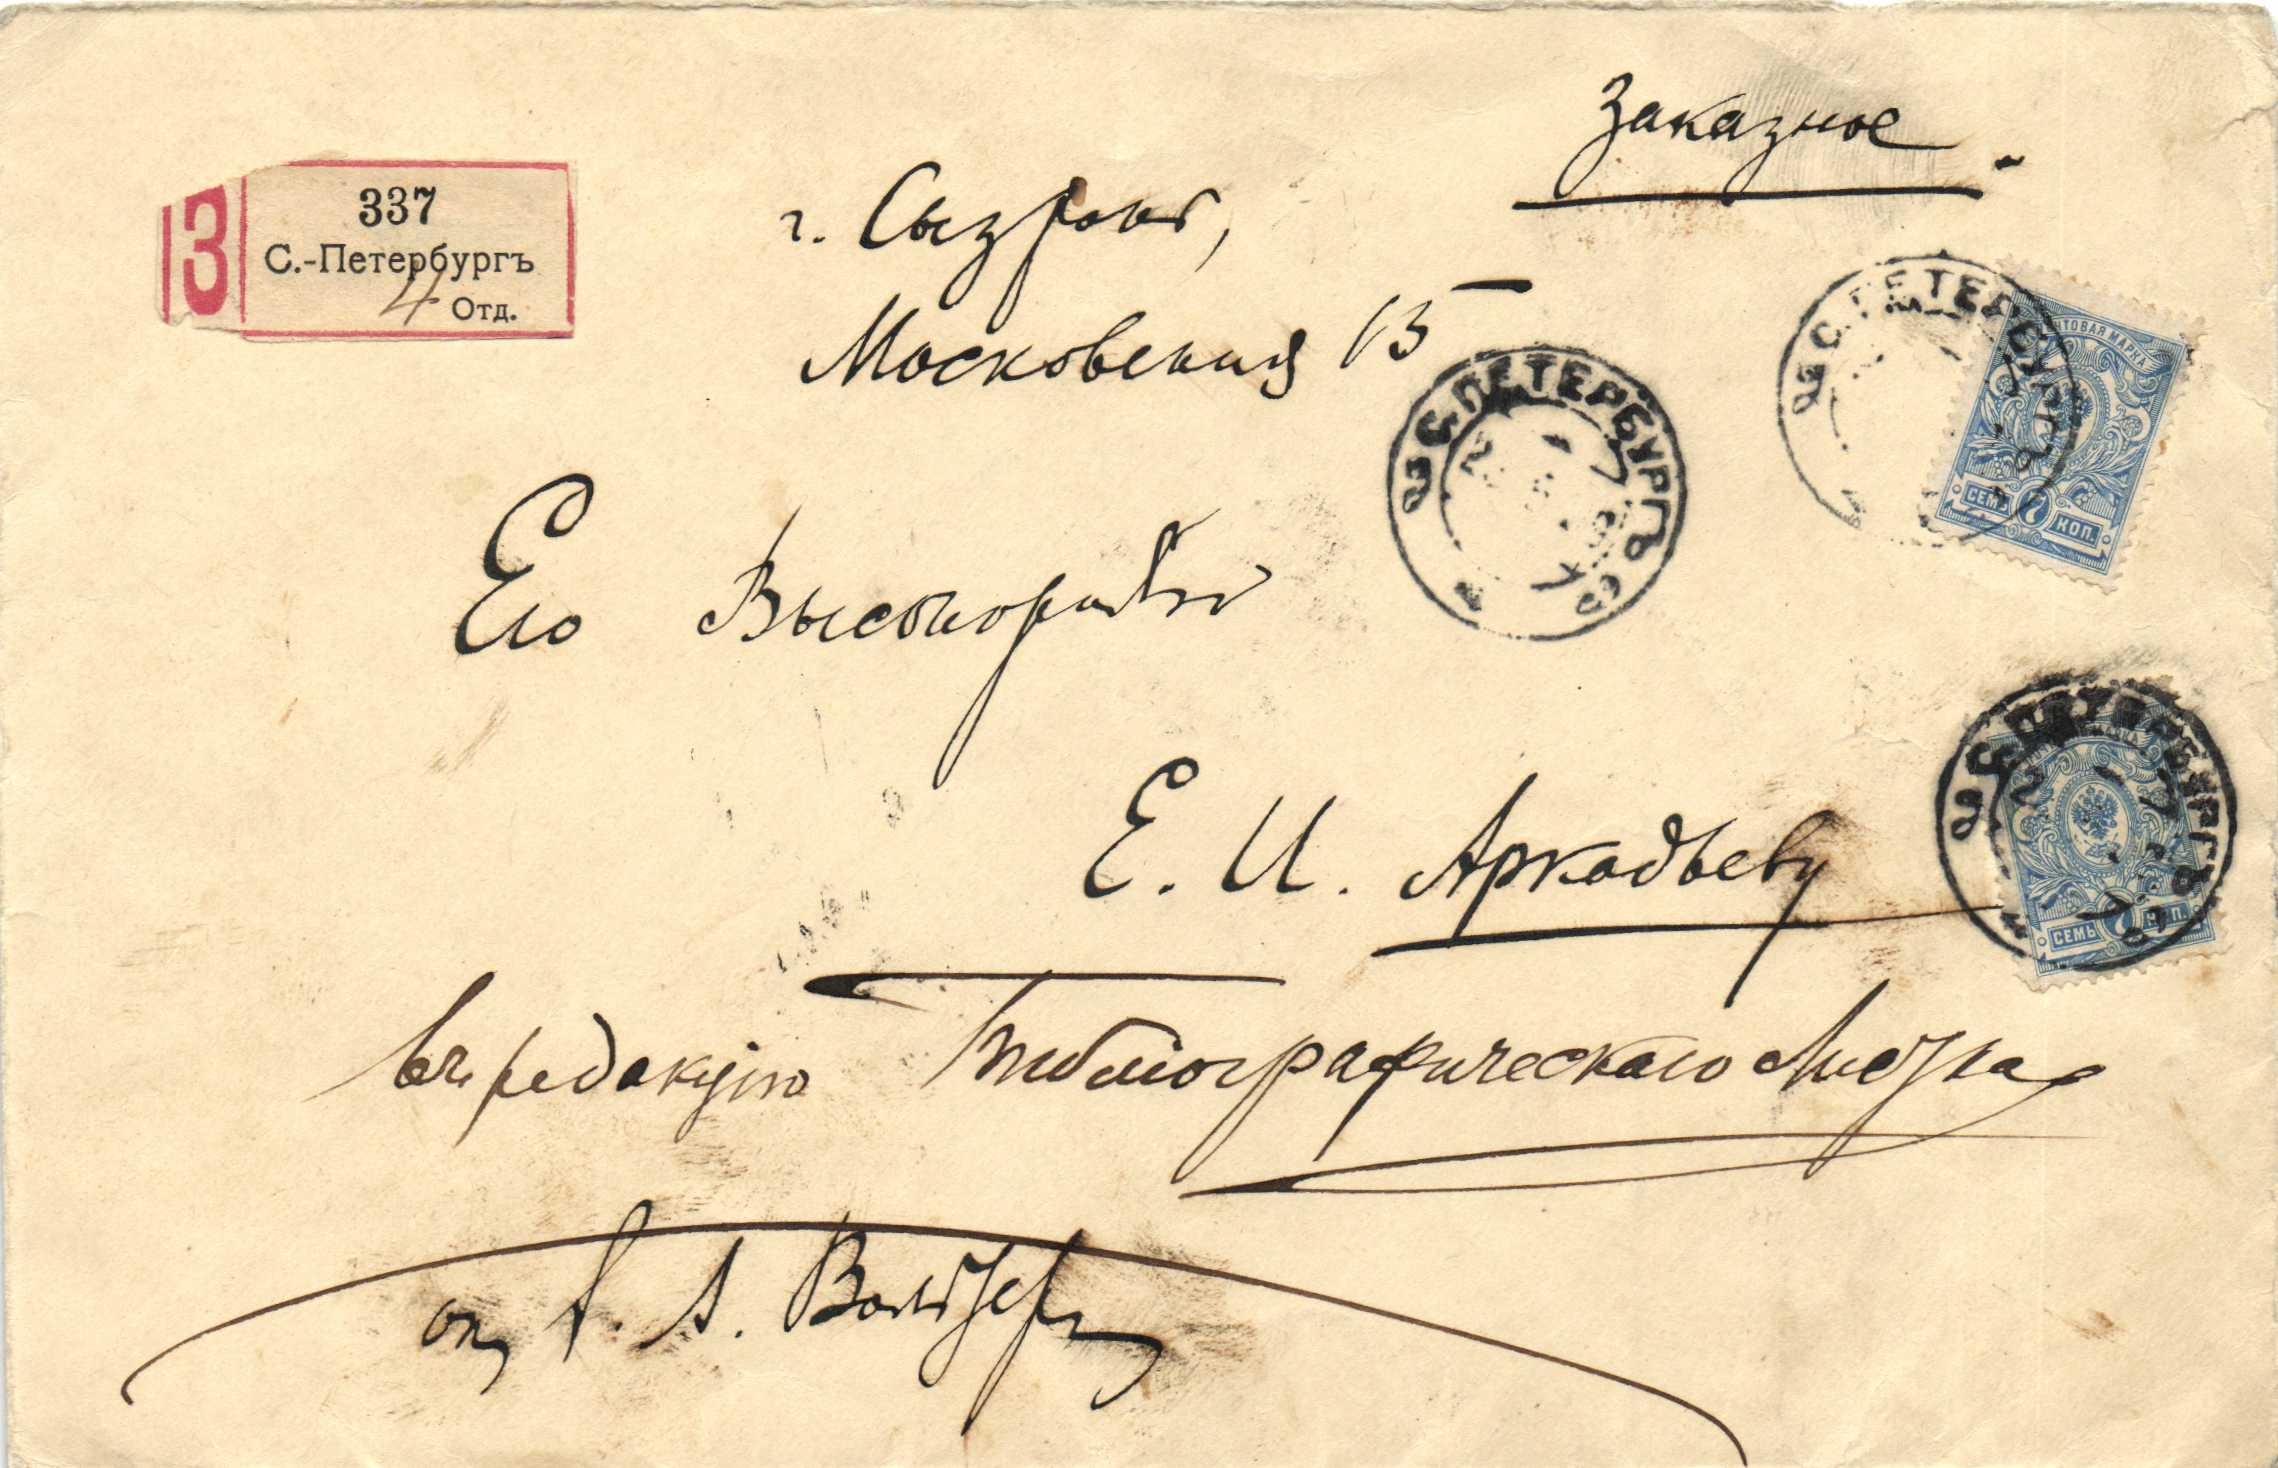 Заказное.
З
337
С.-Петербургъ
4 Отд.
г. Сызрань,
Московская 15
С.ПЕТЕРБУРГЪ
С.ПЕТЕРБУРГЪ
ПОЧТОВАЯ МАРКА
СЕМЬ 7 КОП.
Его
Е. И. Аркадьеву
С.ПЕТЕРБУРГЪ
СЕМЬ 7 КОП.
въ редакцію Библіографическаго Листка
отъ А. Вольтера